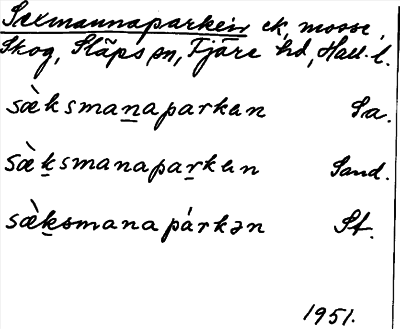 Sexmannaparken ck, mosse,
Skog, Släps sn, Fjäre hd, Hall. l.
sæ̀ksmanaparkən Sa.
sæ̀ksmanaparkən Sand.
sæ̀ksmanapárkən St.
1951.